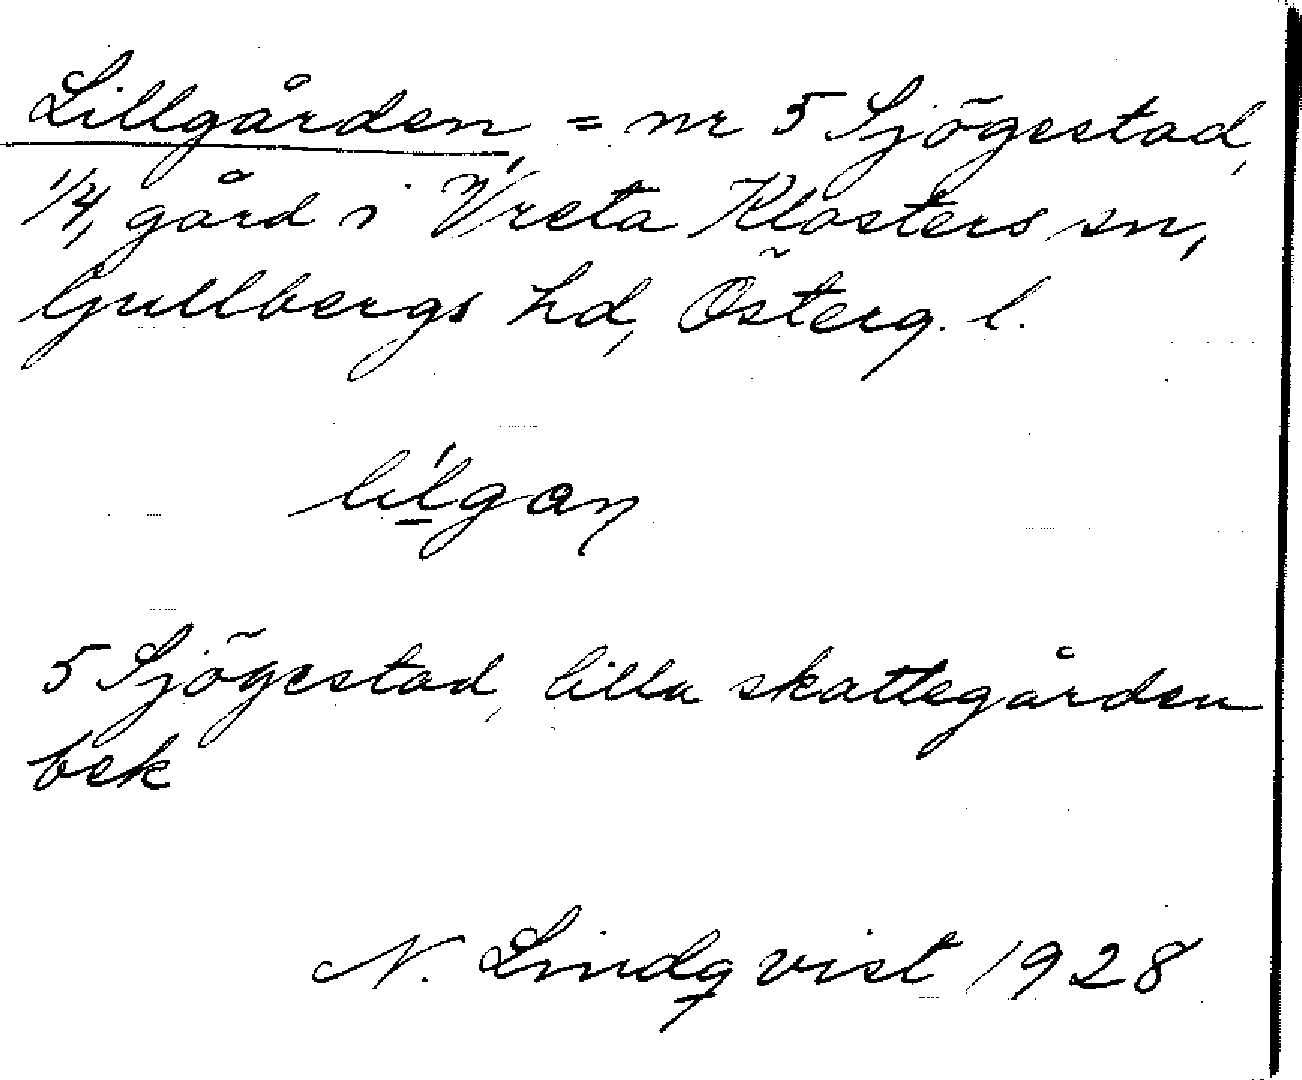 Lillgården, = nr 5 Sjögestad,
1/4, gård i Vreta Klosters sn,
Gullbergs hd, Österg. l.
5 Sjögestad, lilla skattegården
bek
N. Lindqvist 1928